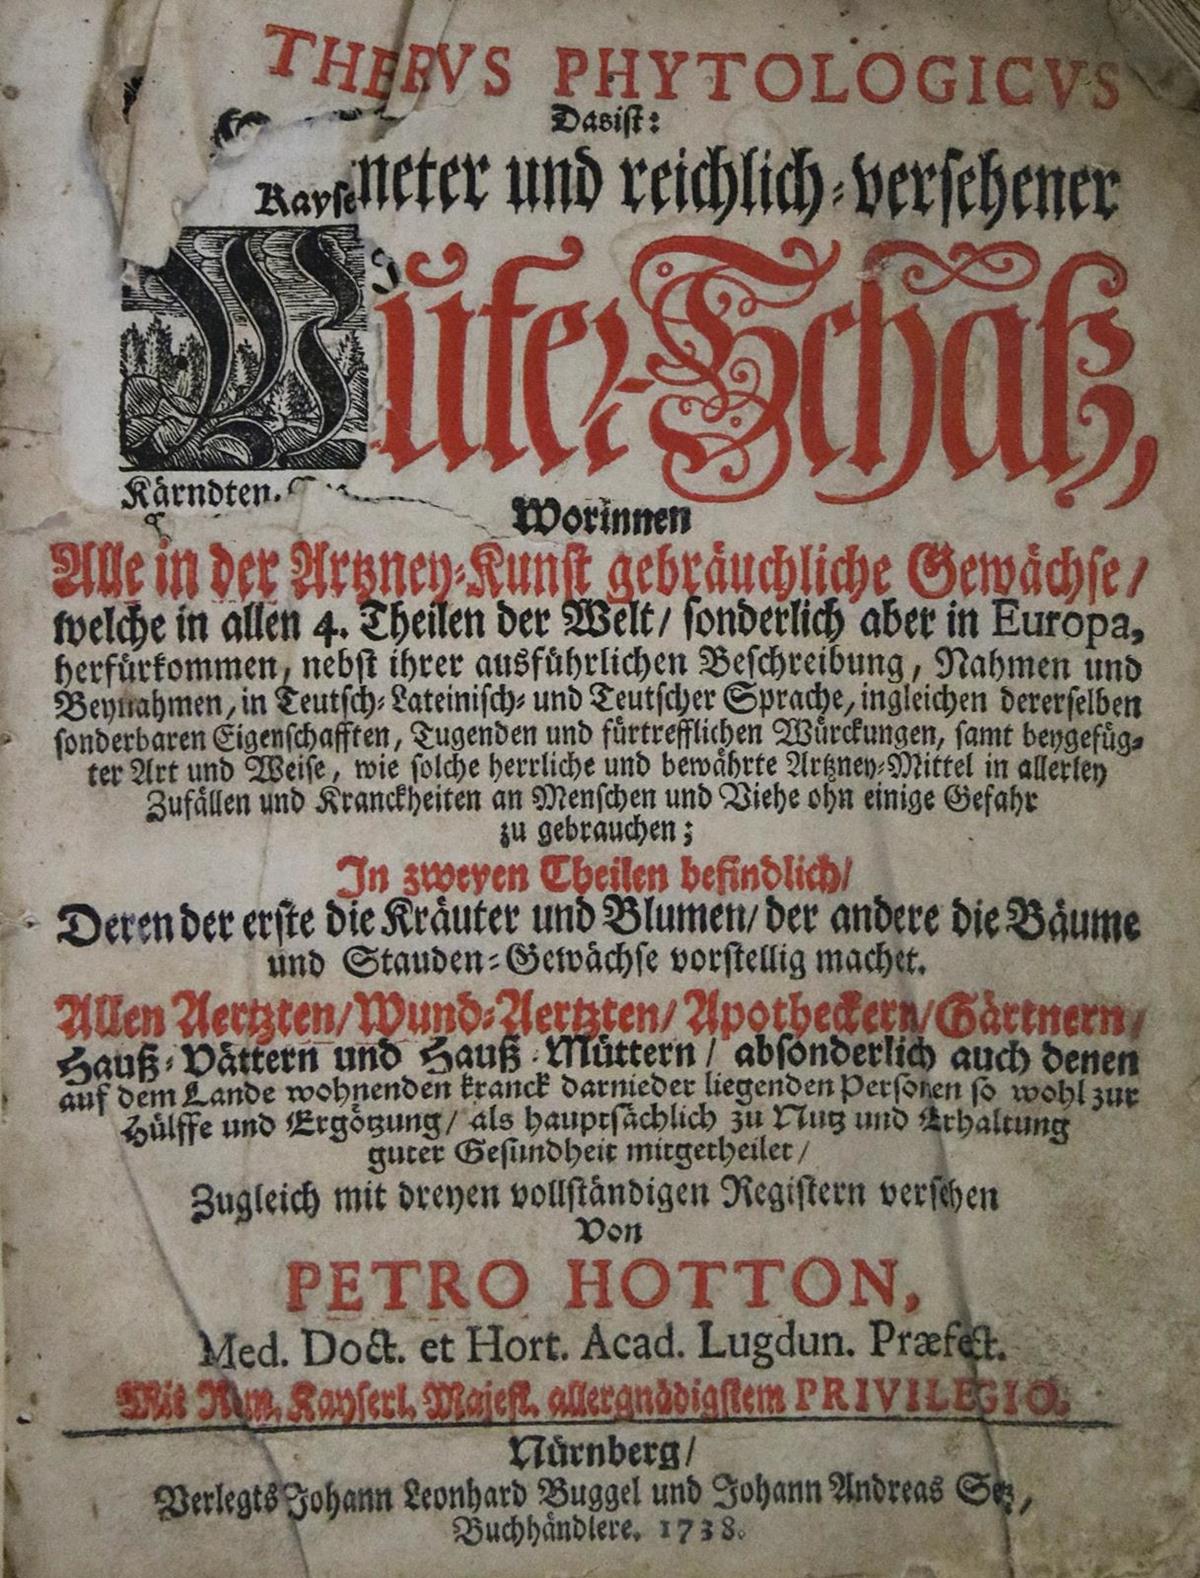 THERVS PHYTOLOGICVS
Das ist:
neter und reichlich-versehener
Kayse
W
uter-Schatz,
Kärndten.
Worinnen
Alle in der Artzney-Kunst gebräuchliche Gewächse/
welche in allen 4. Theilen der Welt/ sonderlich aber in Europa,
herfürkommen, nebst ihrer ausführlichen Beschreibung, Nahmen und
Beynahmen, in Teutsch-Lateinisch- und Teutscher Sprache, ingleichen dererselben
sonderbaren Eigenschafften, Tugenden und fürtrefflichen Würckungen, samt beygefüg-
ter Art und Weise, wie solche herrliche und bewährte Artzney-Mittel in allerley
Zufällen und Kranckheiten an Menschen und Viehe ohn einige Gefahr
zu gebrauchen;
In zweyen Theilen befindlich/
Deren der erste die Kräuter und Blumen/ der andere die Bäume
und Stauden-Gewächse vorstellig machet.
Allen Aertzten/ Wund-Aertzten/ Apotheckern/ Gärtnern/
Hauß-Vättern und Hauß-Müttern/ absonderlich auch denen
auf dem Lande wohnenden kranck darnieder liegenden Personen so wohl zur
Hülffe und Ergötzung/ als hauptsächlich zu Nutz und Erhaltung
guter Gesundheit mitgetheilet/
Zugleich mit dreyen vollständigen Registern versehen
Von
PETRO HOTTON,
Med. Doct. et Hort. Acad. Lugdun. Præfect.
Mit Röm. Kayserl. Majest. allergnädigstem PRIVILEGIO.
Nürnberg/
Verlegts Johann Leonhard Buggel und Johann Andreas Seitz,
Buchhändlere. 1738.